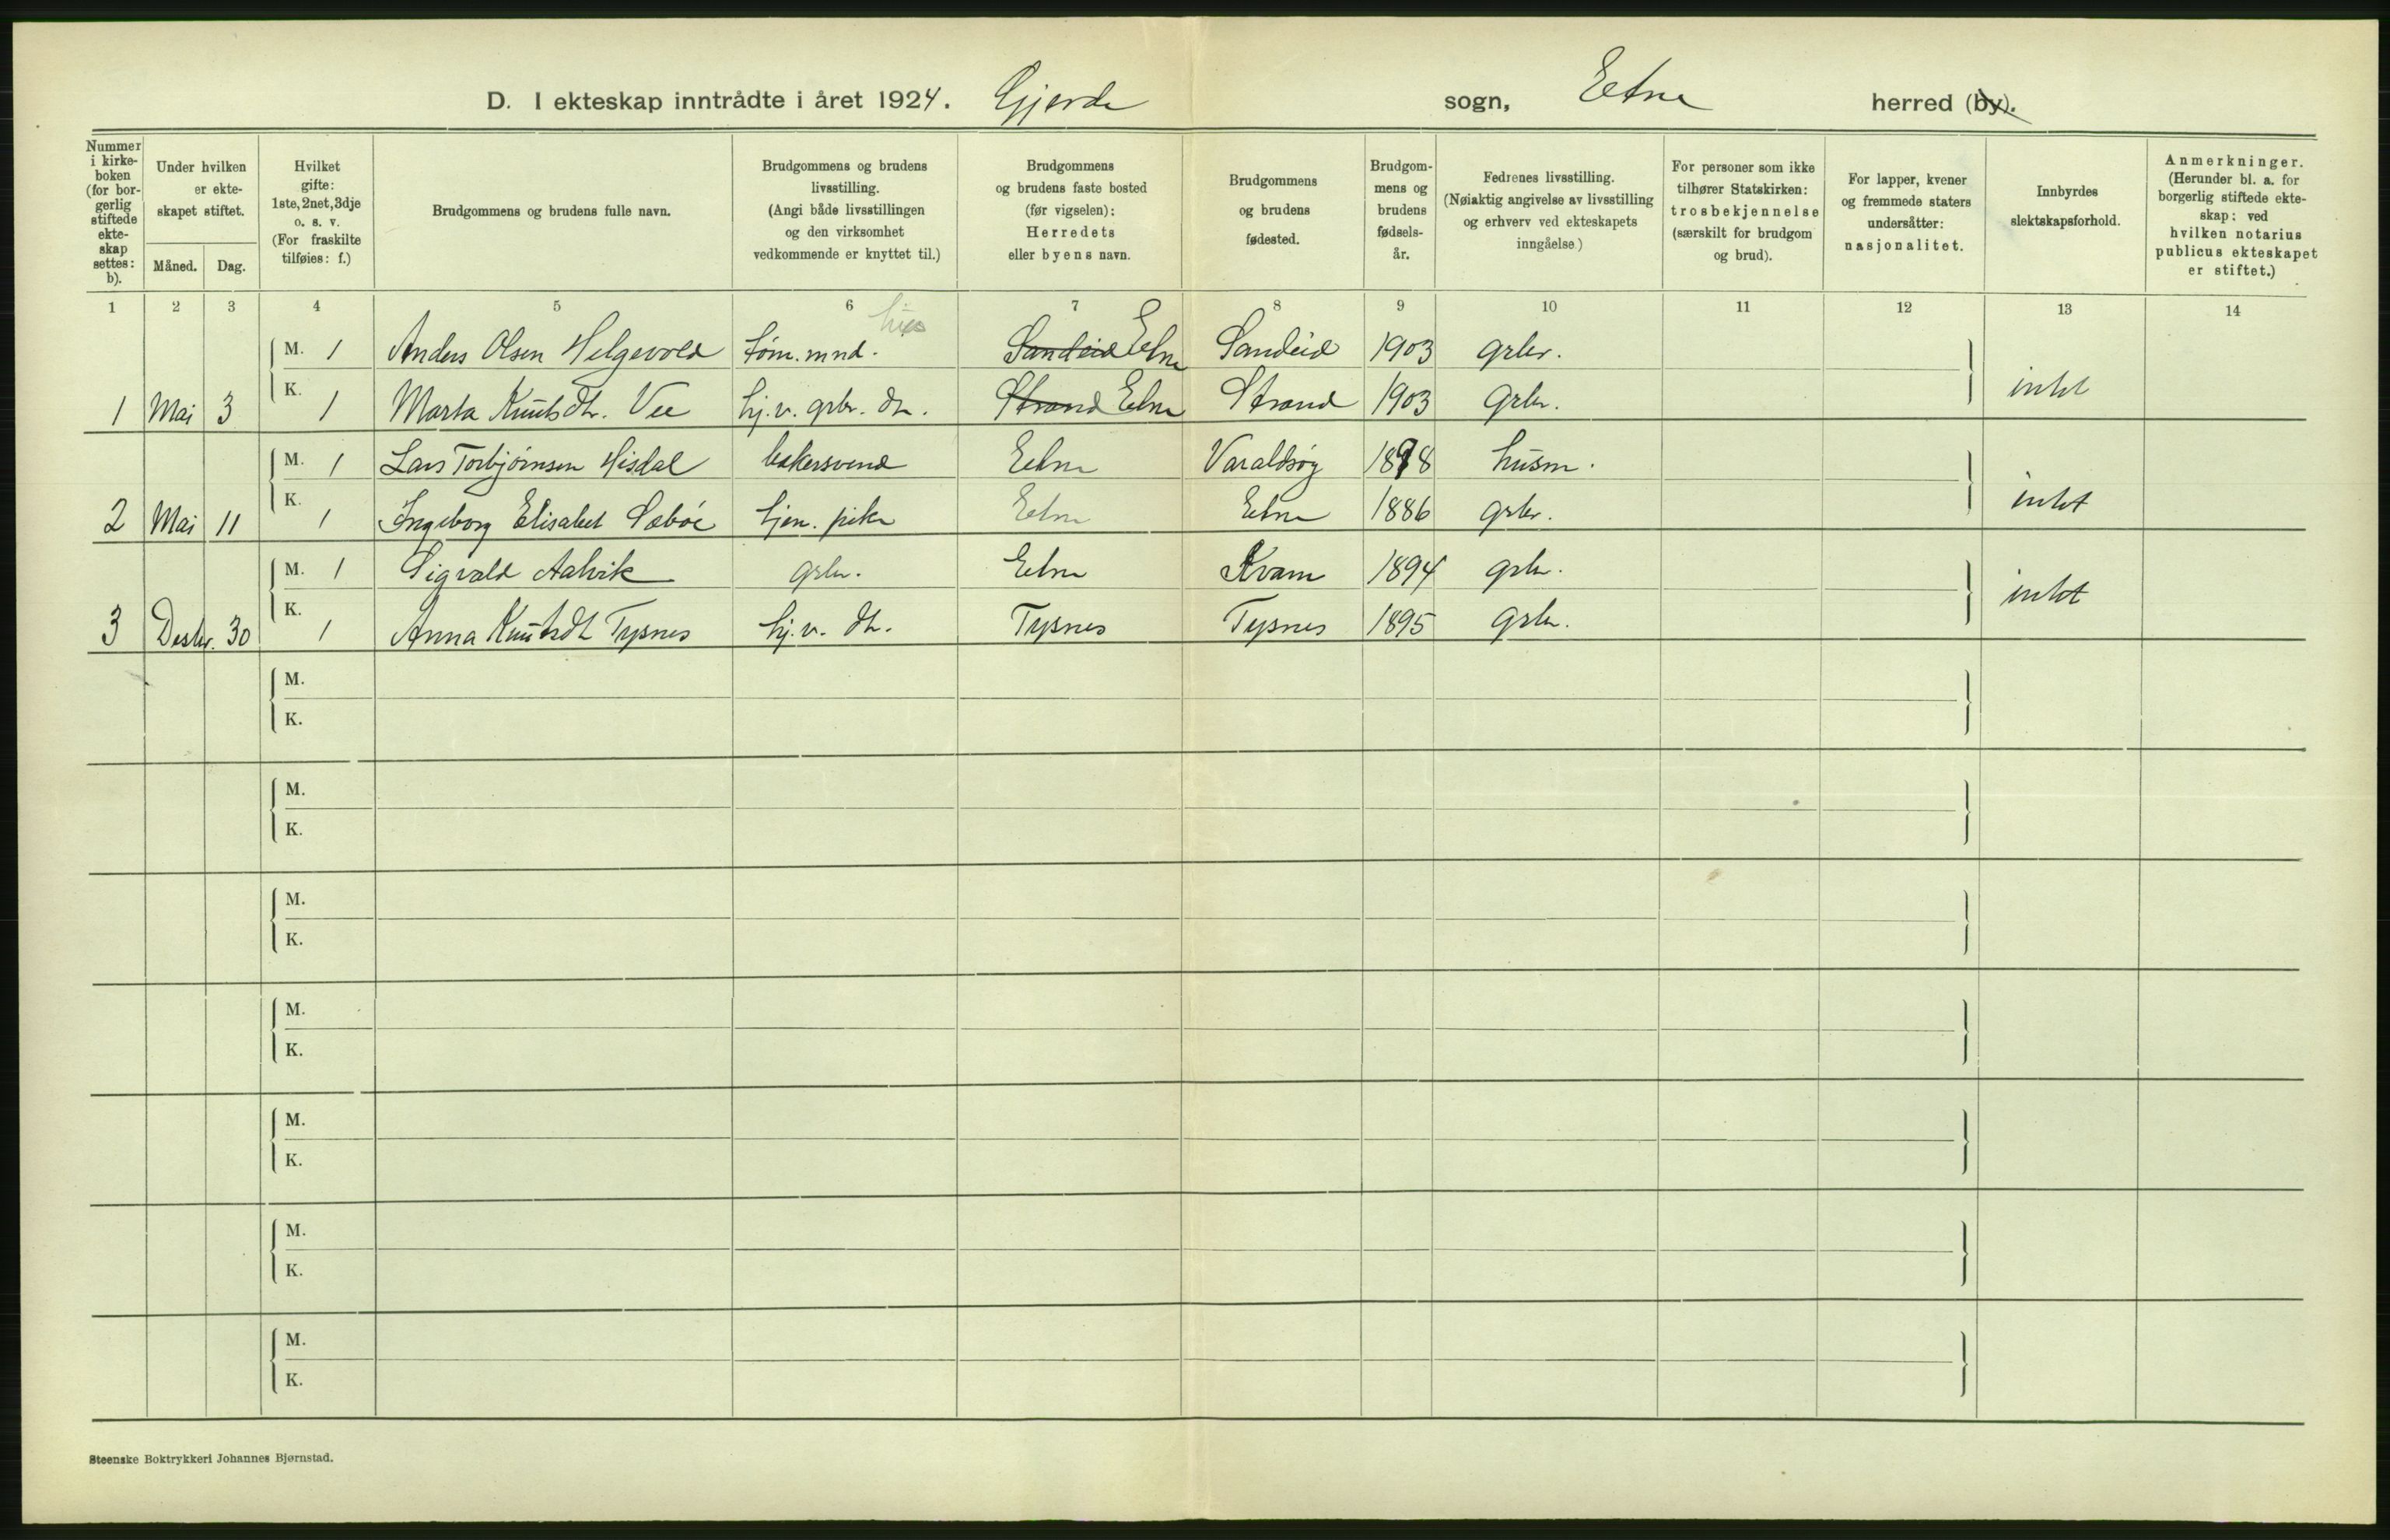 D. I ekteskap inntrådte i året 1924. Gjerde sogn, Etne herred (by).
Nummer i kirkeboken (for borgerlig stiftede ekteskap settes: b).
Under hvilken er ekteskapet stiftet.
Måned.
Dag.
Hvilket gifte: 1ste, 2net, 3dje o. s. v. (For fraskilte tilføies: f.)
Brudgommens og brudens fulle navn.
Brudgommens og brudens livsstilling. (Angi både livsstillingen og den virksomhet vedkommende er knyttet til.)
Brudgommens og brudens faste bosted (før vigselen): Herredets eller byens navn.
Brudgommens og brudens fødested.
Brudgommens og brudens fødselsår.
Fedrenes livsstilling. (Nøiaktig angivelse av livsstilling og erhverv ved ekteskapets inngåelse.)
For personer som ikke tilhører Statskirken: trosbekjennelse (særskilt for brudgom og brud).
For lapper, kvener og fremmede staters undersåtter: nasjonalitet.
Innbyrdes slektskapsforhold.
Anmerkninger. (Herunder bl. a. for borgerlig stiftede ekteskap: ved hvilken notarius publicus ekteskapet er stiftet.)
1 2 3 4 5 6 7 8 9 10 11 12 13 14
M. 1 Anders Olsen Helgevold tøm. mnd. Sandeid Etne Sandeid 1903 grbr.
1 Mai 3 K. 1 Marta Knutsdtr. Vee hj. v. grbr. dtr. Strand Etne Strand 1903 grbr. intet
M. 1 Lars Torbjørnsen Hisdal bakersvend Etne Varaldsøy 1898 husm.
2 Mai 11 K. 1 Ingeborg Elisabet Sæbøe tjen. pike Etne Etne 1886 grbr. intet
M. 1 Sigvald Aalvik grbr. Etne Kvam 1894 grbr.
3 Desbr. 30 K. 1 Anna Knutsdt Tysnes hj. v. dtr. Tysnes Tysnes 1895 grbr. intet
M.
K.
M.
K.
M.
K.
M.
K.
M.
K.
M.
K.
M.
K.
Steenske Boktrykkeri Johannes Bjørnstad.